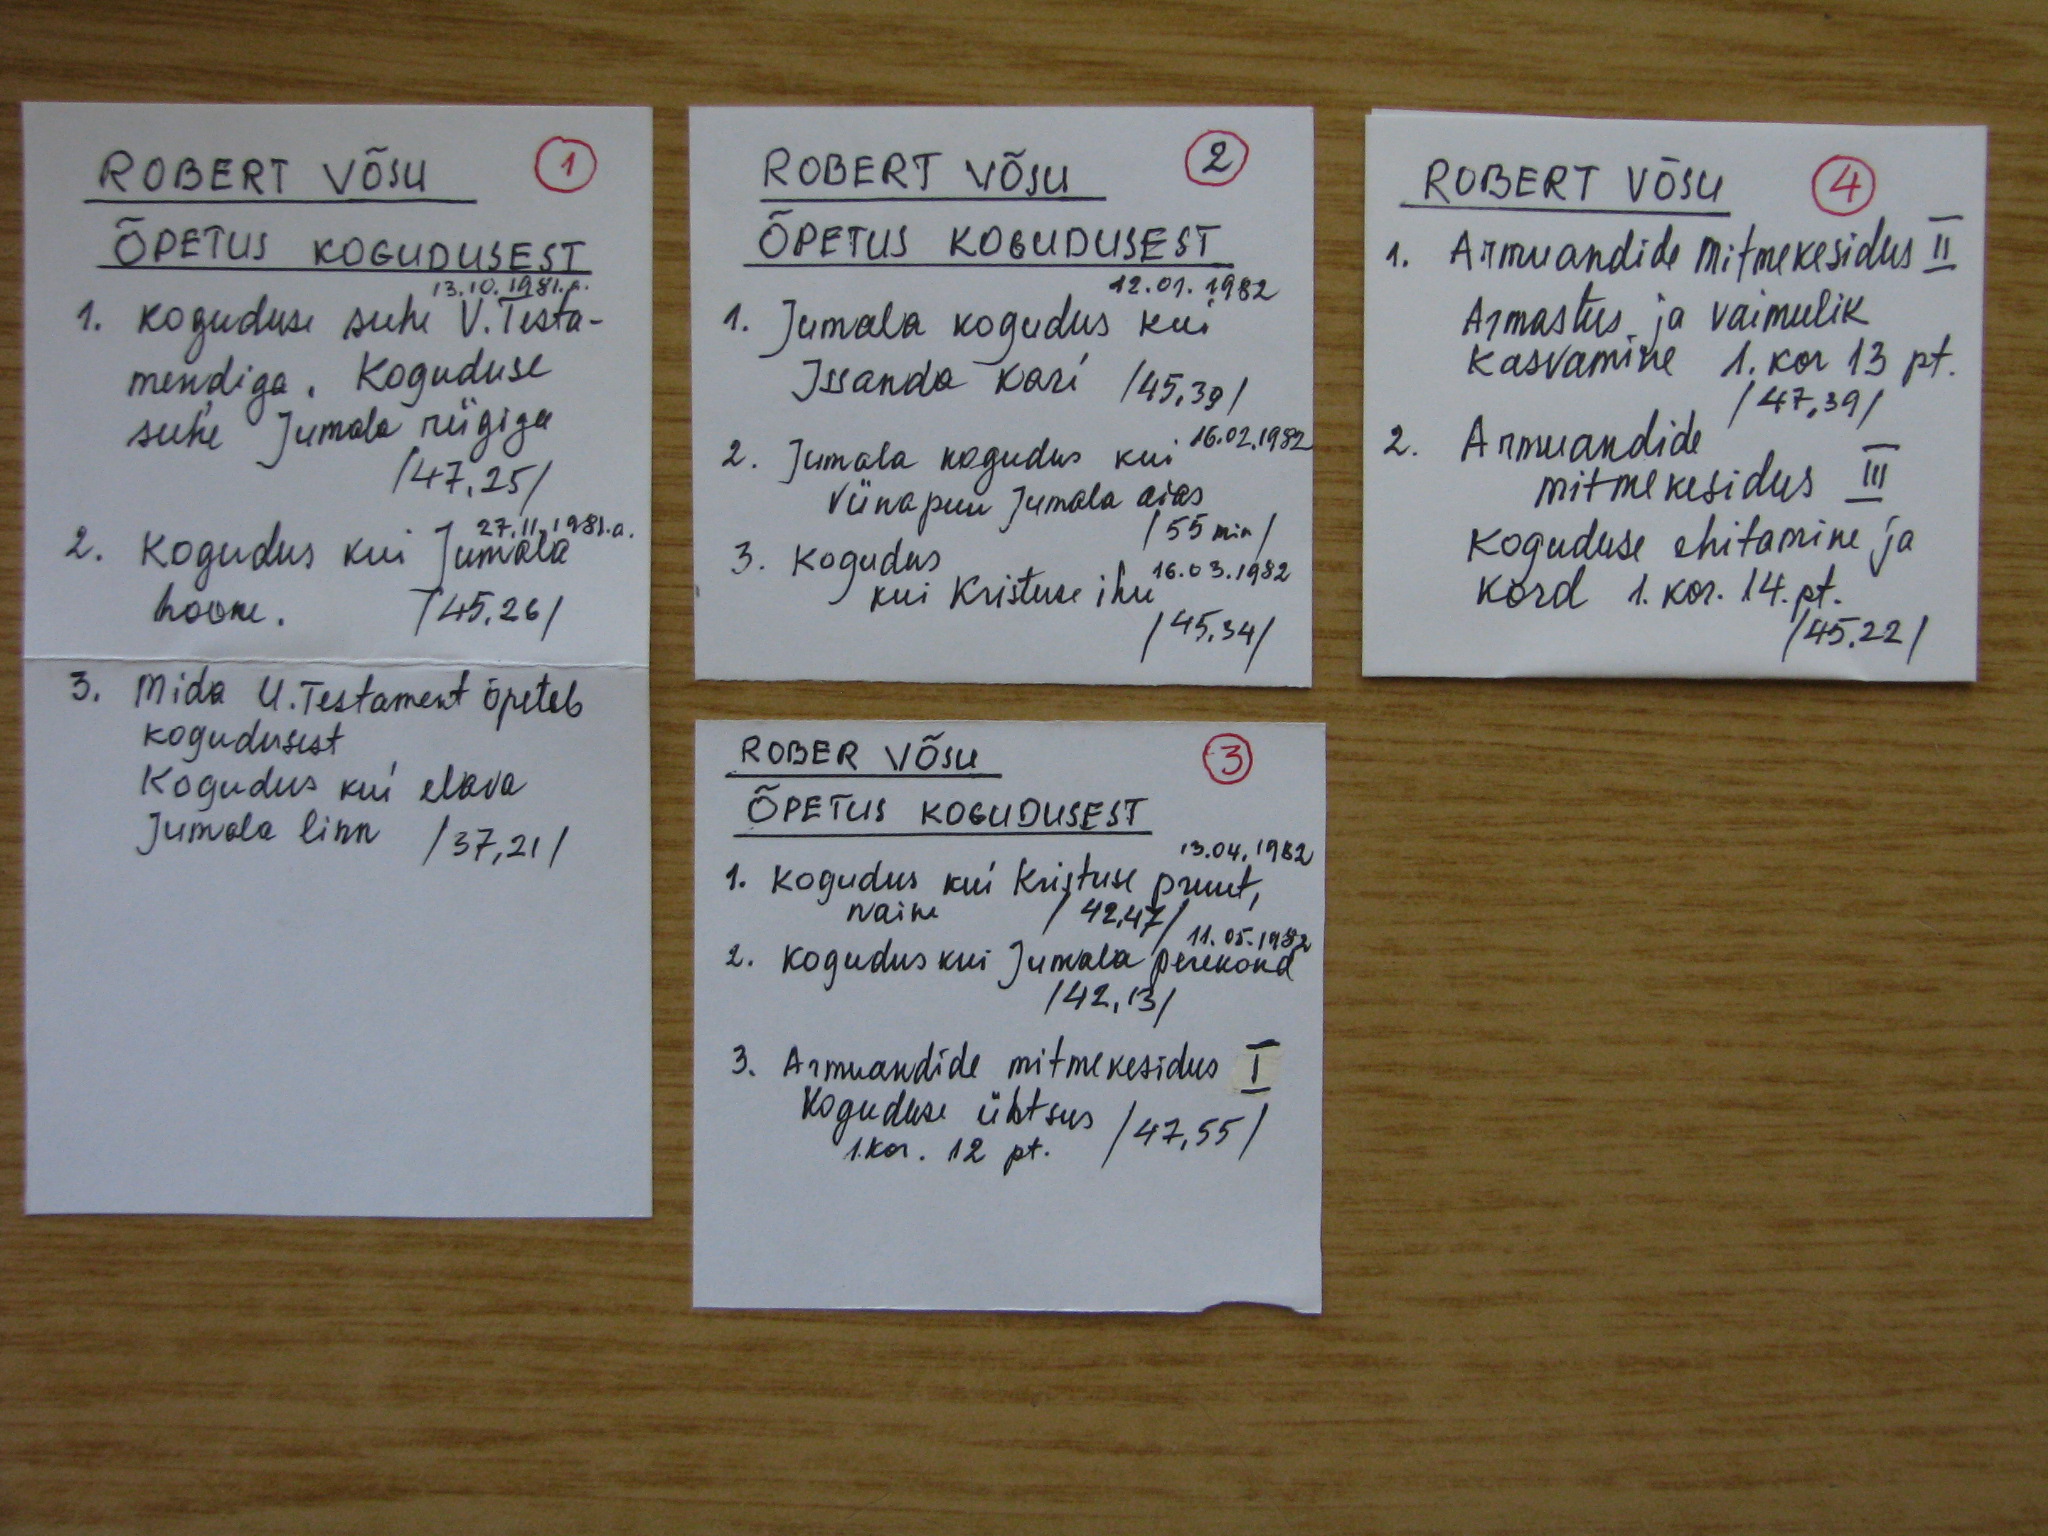 ROBERT VÕSU 1
ÕPETUS KOGUDUSEST
13.10.1981.a.
1. Koguduse suhe V.Testa-
mendiga. Koguduse
suhe Jumala riigiga
/47,25/
27.11.1981.a.
2. Kogudus kui Jumala
hoone. /45,26/
3. Mida U.Testament õpetab
kogudusest
Kogudus kui elava
Jumala linn /37,21/
ROBERT VÕSU 2
ÕPETUS KOGUDUSEST
12.01.1982
1. Jumala kogudus kui
Issanda kari /45,39/
2. Jumala kogudus kui 16.02.1982
viinapuu Jumala aias
/55 min/
3. Kogudus
kui Kristuse ihu 16.03.1982
/45,34/
ROBER VÕSU 3
ÕPETUS KOGUDUSEST
13.04.1982
1. Kogudus kui Kristuse pruut,
naine /42,47/
11.05.1982
2. Kogudus kui Jumala perekond
/42,13/
3. Armuandide mitmekesidus I
Koguduse ühtsus /47,55/
1.Kor. 12 pt.
ROBERT VÕSU 4
1. Armuandide mitmekesidus II
Armastus ja vaimulik
kasvamine 1. kor 13 pt.
/47,39/
2. Armuandide
mitmekesidus III
Koguduse ehitamine ja
kord 1. kor. 14. pt.
/45.22/